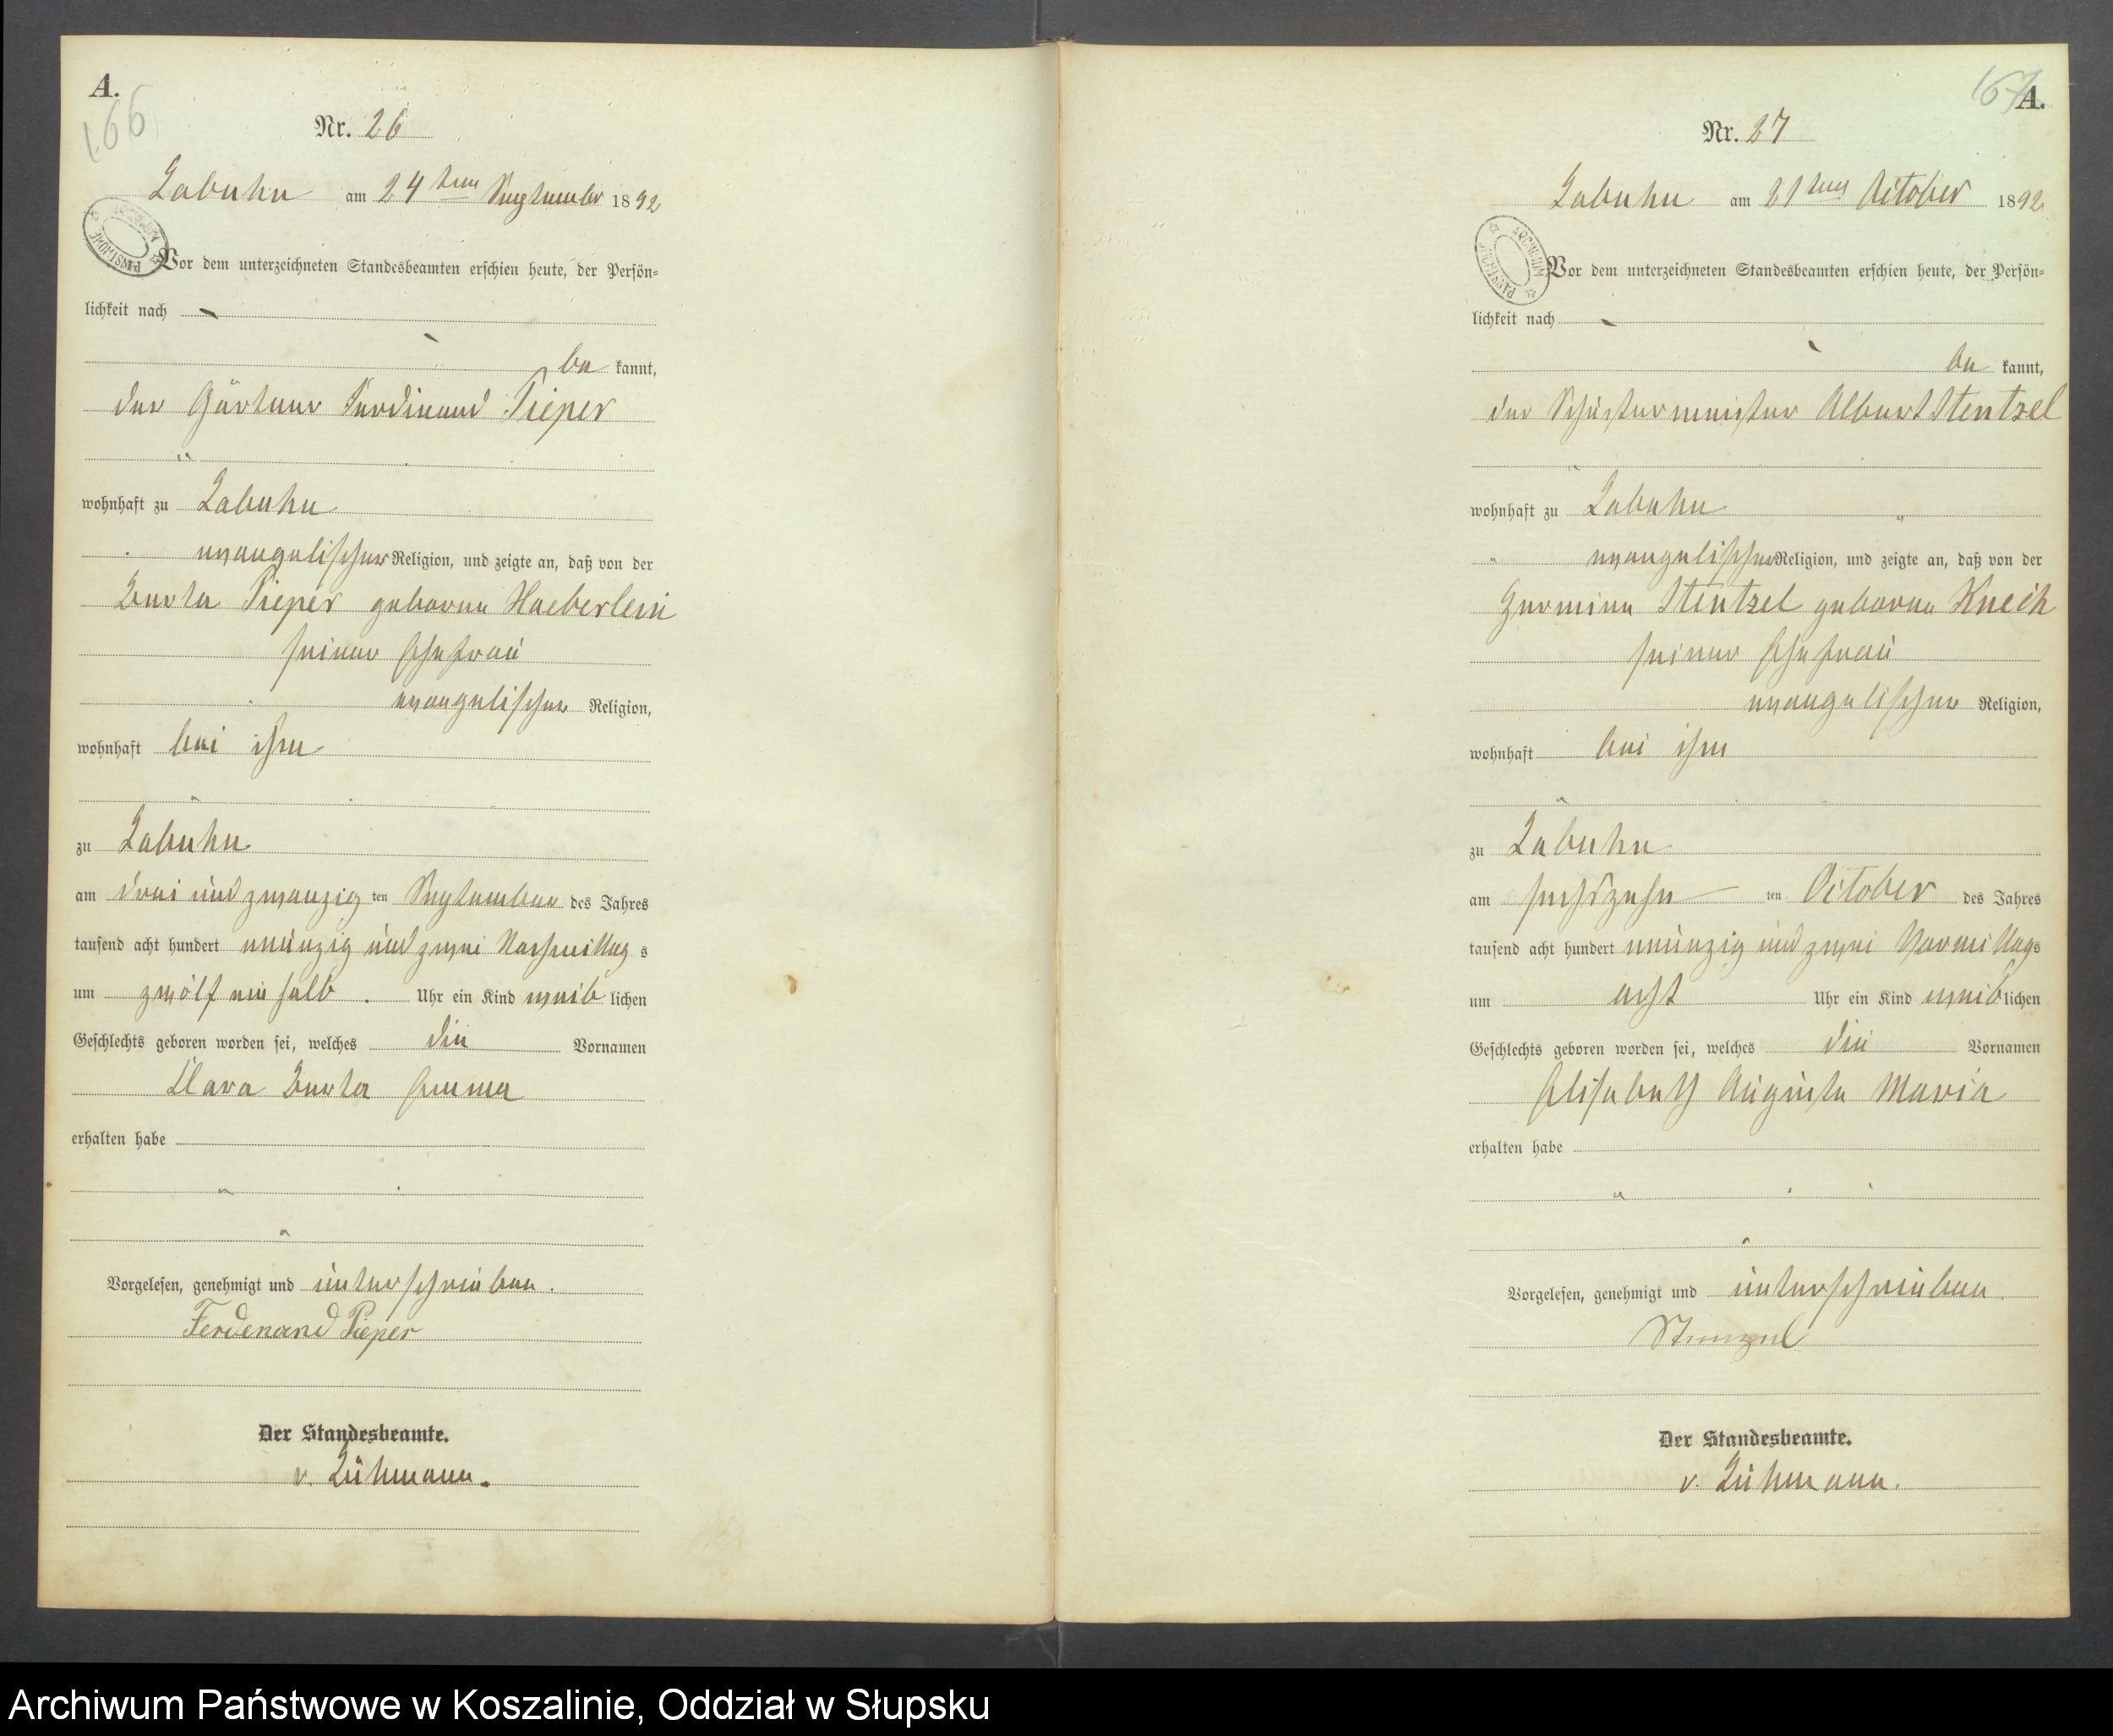 A.
166
Nr. 26
Labuhn am 24ten September 1892
Vor dem unterzeichneten Standesbeamten erschien heute, der Persön-
lichkeit nach
be kannt,
der Gärtner Ferdinand Pieper
wohnhaft zu Labuhn
evangelischer Religion, und zeigte an, daß von der
Berta Pieper geborne Haeberlein
seiner Ehefrau
evangelischer Religion,
wohnhaft bei ihm
zu Labuhn
am drei und zwanzig ten September des Jahres
tausend acht hundert neunzig und zwei Nachmittag s
um zwölf ein halb Uhr ein Kind weib lichen
Geschlechts geboren worden sei, welches die Vornamen
Clara Berta Emma
erhalten habe
Vorgelesen, genehmigt und unterschrieben.
Ferdenand Pieper
Der Standesbeamte.
v. Lühmann.
167
A.
Nr. 27
Labuhn am 21ten October 1892
Vor dem unterzeichneten Standesbeamten erschien heute, der Persön-
lichkeit nach
be kannt,
der Schustermeister Albert Stentzel
wohnhaft zu Labuhn
evangelischer Religion, und zeigte an, daß von der
Hermine Stentzel geborne Knech
seiner Ehefrau
evangelischer Religion,
wohnhaft bei ihm
zu Labuhn
am sechszehn ten October des Jahres
tausend acht hundert neunzig und zwei Vormittags
um acht Uhr ein Kind weiblichen
Geschlechts geboren worden sei, welches die Vornamen
Elisabeth Auguste Maria
erhalten habe
Vorgelesen, genehmigt und unterschrieben.
Der Standesbeamte.
v. Lühmann.
Archiwum Państwowe w Koszalinie, Oddział w Słupsku